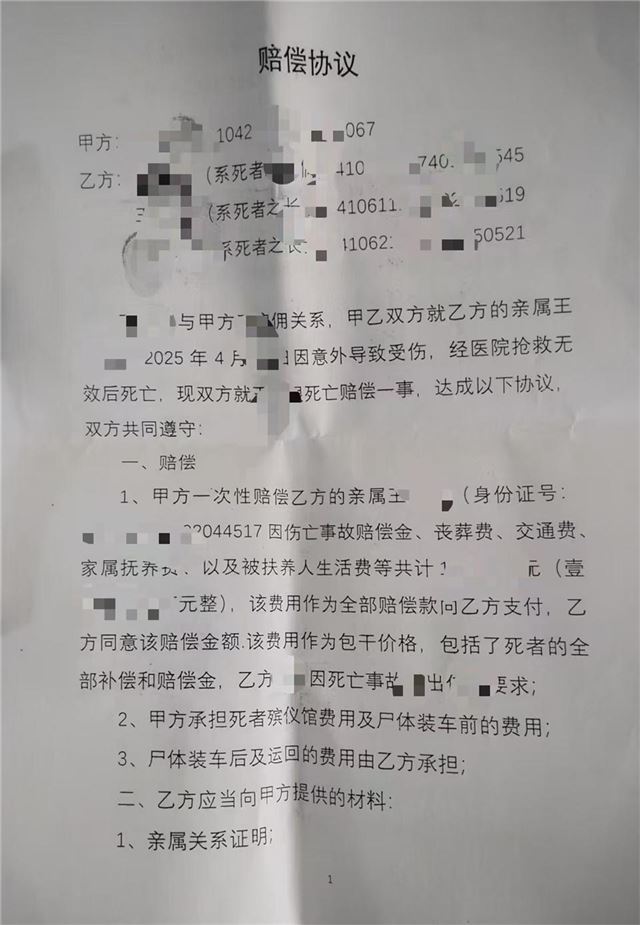 赔偿协议
甲方： 1042 067
乙方： （系死者 410 740 545
（系死者之长 410611 519
系死者之长 410621 50521
与甲方 佣关系，甲乙双方就乙方的亲属王
2025年4月 日因意外导致受伤，经医院抢救无
效后死亡，现双方就 死亡赔偿一事，达成以下协议，
双方共同遵守：
一、赔偿
1、甲方一次性赔偿乙方的亲属王 （身份证号：
044517因伤亡事故赔偿金、丧葬费、交通费、
家属抚养费、以及被扶养人生活费等共计1 元（壹
元整），该费用作为全部赔偿款向乙方支付，乙
方同意该赔偿金额.该费用作为包干价格，包括了死者的全
部补偿和赔偿金，乙方 因死亡事故 出 要求；
2、甲方承担死者殡仪馆费用及尸体装车前的费用；
3、尸体装车后及运回的费用由乙方承担；
二、乙方应当向甲方提供的材料：
1、亲属关系证明；
1